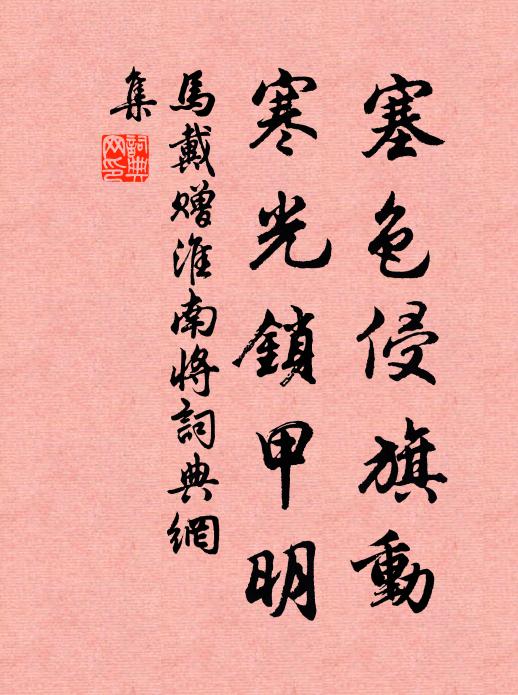 塞色侵旗動
寒光鎖甲明
馬戴贈淮南將詞典網
集
詞典
网印